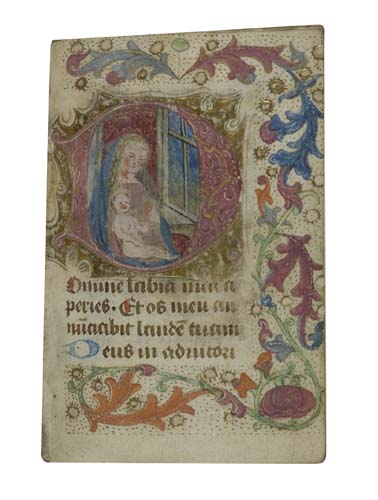 Domine labia mea a
peries. Et os meū an
nūciabit laudē tuam
Deus in adiutori